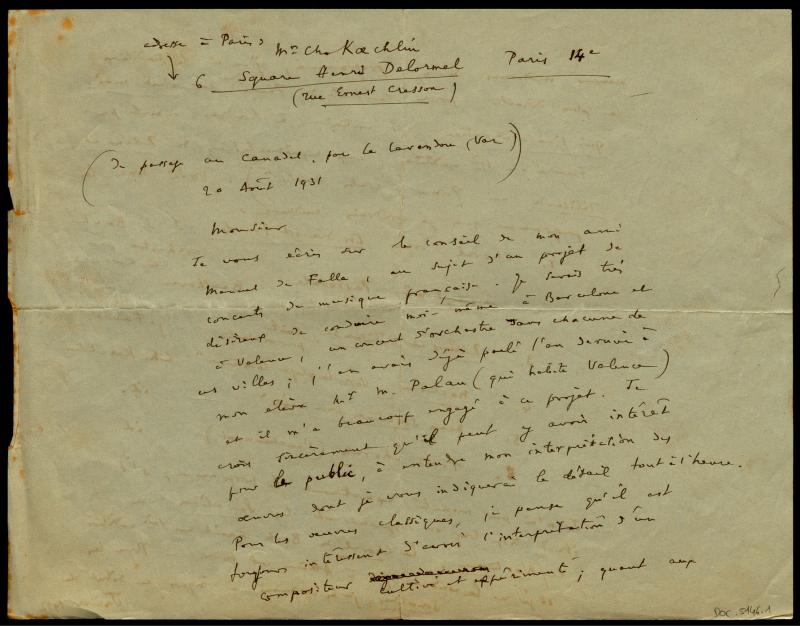 adresse = Paris
Mr Ch. Kœchlin
6 Square Henri Delormel Paris 14e
(rue Ernest Cresson)
(de passage au Canadel, par le Lavandou (Var))
20 Août 1931
Monsieur
Je vous écris sur le conseil de mon ami
Manuel de Falla, au sujet d'un projet de
concerts de musique française. Je serais très
désireux de conduire moi-même à Barcelone et
à Valence, un concert d'orchestre dans chacune de
ces villes; j'en avais déjà parlé l'an dernier à
mon élève Mr M. Palau (qui habite Valence)
et il m'a beaucoup engagé à ce projet. Je
crois sincèrement qu'il peut y avoir intérêt
pour le public, à entendre mon interprétation des
œuvres dont je vous indiquerai le détail tout à l'heure.
Pour les œuvres classiques, je pense qu'il est
toujours intéressant d'avoir l'interprétation d'un
compositeur cultivé et expérimenté; quant aux
DOC. 5146.1